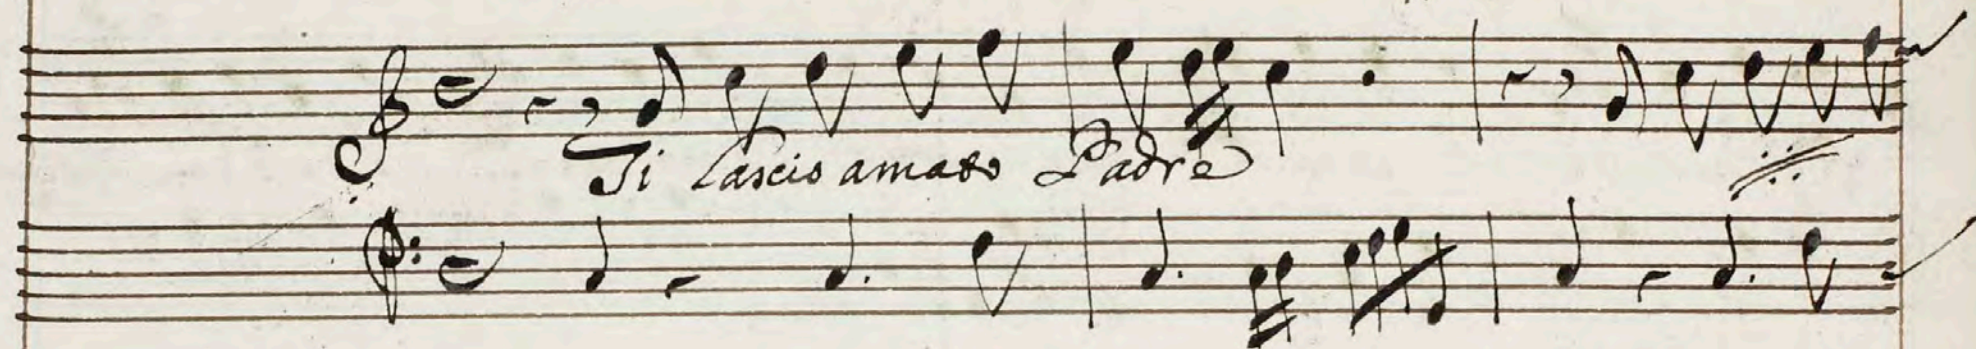 Ti lascio amato Padre